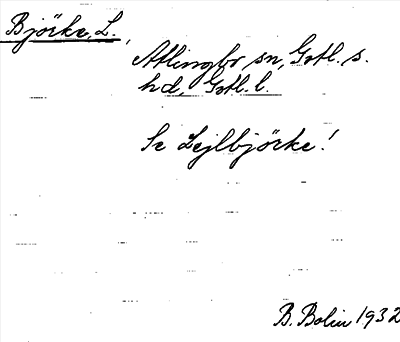 Björke, L.,
Atlingbo sn, Gotl. s.
hd, Gotl. l.
Se Lejlbjörke!
B. Bolin 1932